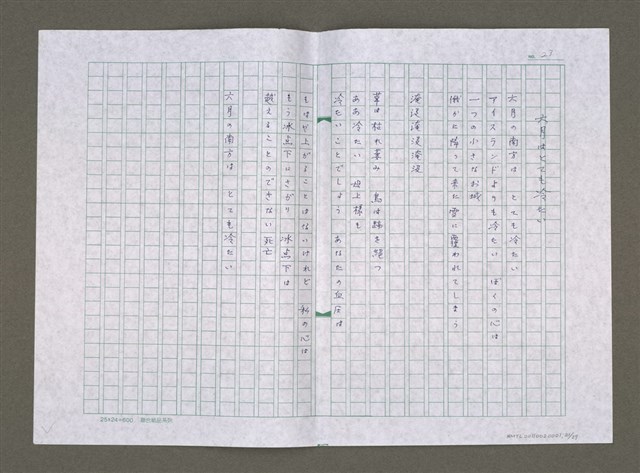 六月はとても冷たい
六月の南方は とても冷たい
アイスランドよりも冷たい ぼくの心は
一つの小さなお城
俄かに降って来た雪に覆われてしまう
淹没淹没淹没
草は枯れ萎み 鳥は跡を絶つ
ああ冷たい 地上様も
冷たいことでしょう あなたの反応は
もはや上がることはないけれど 私の心は
もう氷点下にさがり 氷点下は
越えることのできない死亡
六月の南方は とても冷たい
25×24=600